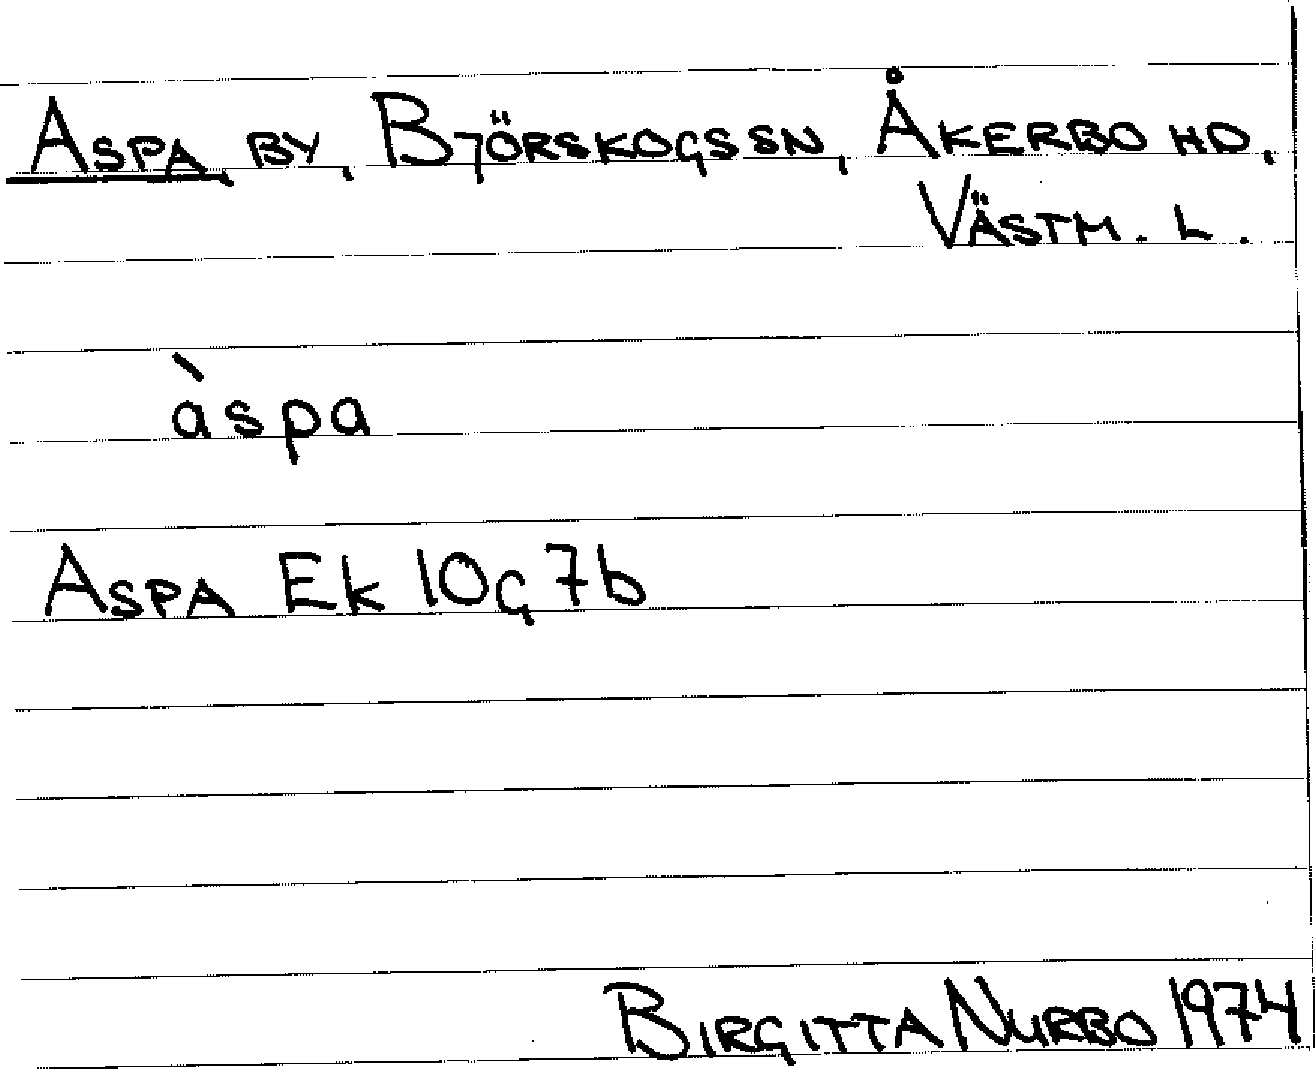 ASPA, BY, BJÖRSKOGS SN, ÅKERBO HD.
VÄSTM. L.
àspa
ASPA Ek 10G 7b
BIRGITTA NURBO 1974